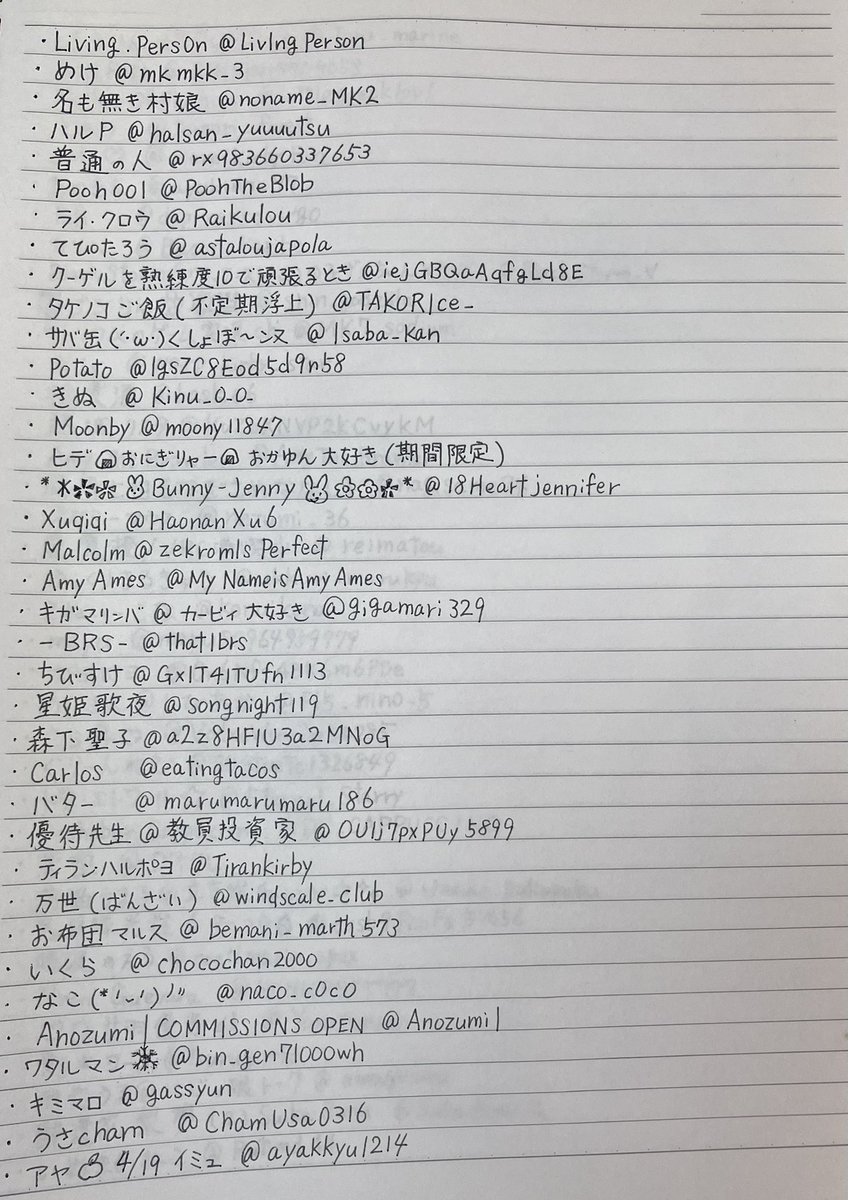 ・Living.Pers0n @LivIngPerson
・めけ @mkmkk_3
・名も無き村娘 @noname_MK2
・ハルP @halsan_yuuuutsu
・普通の人 @rx983660337653
・Pooh001 @PoohTheBlob
・ライ・クロウ @Raikulou
・てぴたろう @astaloujapola
・クーゲルを熟練度10で頑張るとき @iejGBQaAqfgLd8E
・タケノコご飯(不定期浮上) @TAKORIce_
・サバ缶(´･ω･)くしょぼ〜ンヌ @1saba_kan
・Potato @IgsZC8Eod5d9n58
・きぬ @Kinu_0_0_
・Moonby @moony11847
・ヒデ🍙おにぎりゃー🍙 おかゆん大好き(期間限定)
・Bunny-Jenny @18Heartjennifer
・Xuqiqi @HaonanXu6
・Malcolm @zekromIsPerfect
・Amy Ames @MyNameisAmyAmes
・キガマリンバ@カービィ大好き @gigamari329
・-BRS- @that1brs
・ちびすけ @Gx1T41TUfn1113
・星姫歌夜 @songnight119
・森下聖子 @a2z8HFIU3a2MNoG
・Carlos @eatingtacos
・バター @marumarumaru186
・優待先生@教員投資家 @OUIj7pxPUy5899
・ティランハルポヨ @Tirankirby
・万世(ばんざい) @windscale_club
・お布団マルス @bemani_marth573
・いくら @chocochan2000
・なこ(*'ᴗ')ﾉ" @naco_c0c0
・Anozumi|COMMISSIONS OPEN @Anozumi1
・ワタルマン❄ @bin_gen71000wh
・キミマロ @gassyun
・うさcham @ChamUsa0316
・アヤ 4/19 イミュ @ayakkyu1214